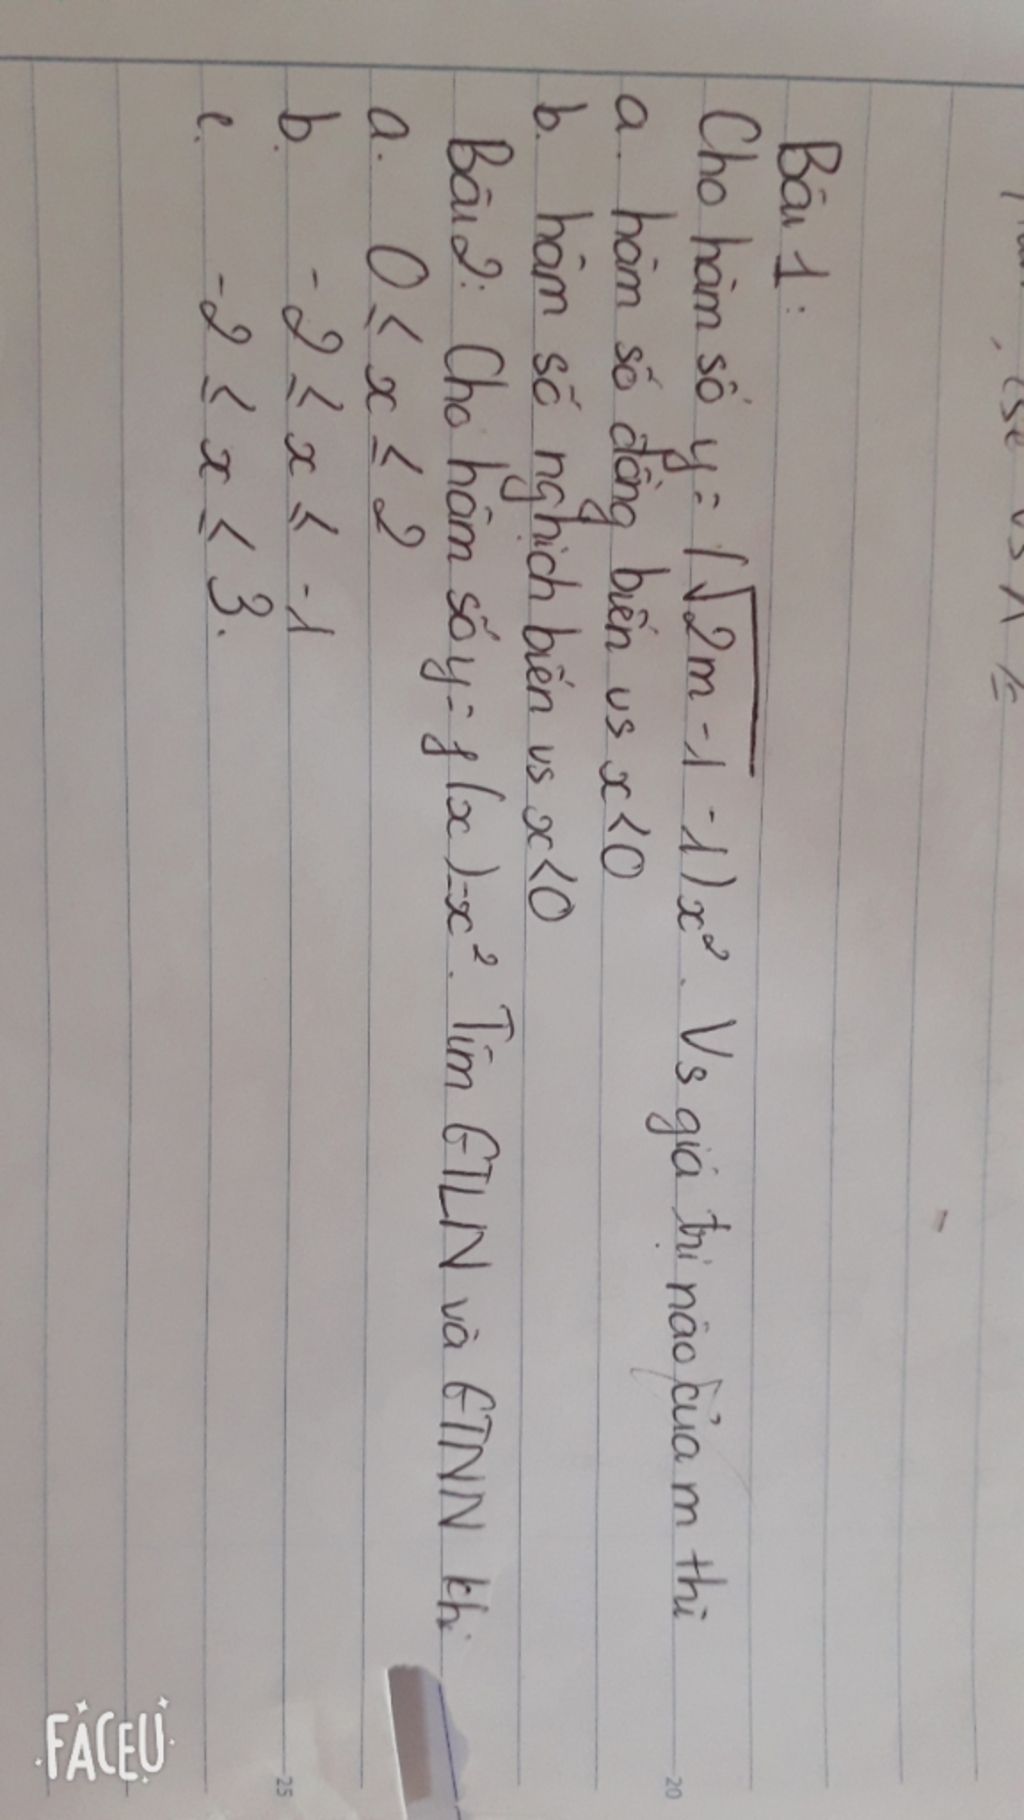 Bài 1:
Cho hàm số y = (√2m - 1 - 1)x². Vs giá trị nào của m thì
a. hàm số đồng biến vs x<0
b. hàm số nghịch biến vs x<0
Bài 2: Cho hàm số y = f(x) = x². Tìm GTLN và GTNN khi
a. 0 ≤ x ≤ 2
b. -2 ≤ x ≤ -1
c. -2 ≤ x ≤ 3.
20
25
FACEU